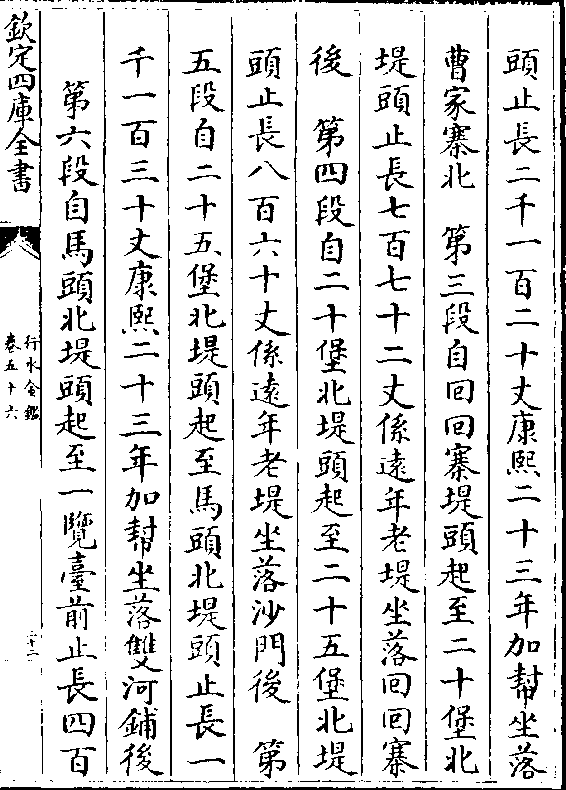 頭止長二千一百二十丈康熙二十三年加幫坐落
曹家寨北　第三段自回回寨堤頭起至二十堡北
堤頭止長七百七十二丈係遠年老堤坐落回回寨
後　第四段自二十堡北堤頭起至二十五堡北堤
頭止長八百六十丈係遠年老堤坐落沙門後　第
五段自二十五堡北堤頭起至馬頭北堤頭止長一
千一百三十丈康熙二十三年加幫坐落雙河鋪後
第六段自馬頭北堤頭起至一覽臺前止長四百
欽定四庫全書
行水金鑑
卷五十六